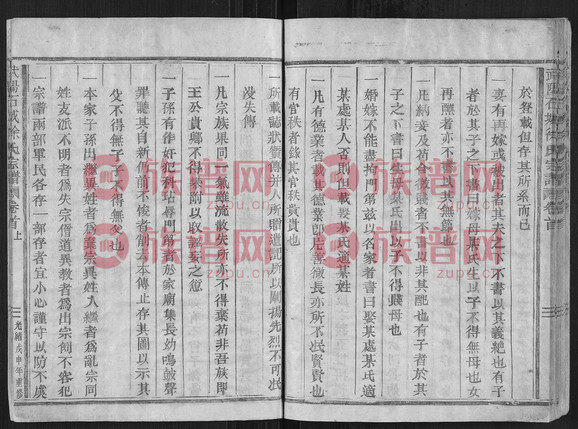 於登載但存其所系而已
一妻有再嫁或被出者其夫之下不書以其義絕也有子
者於其子之下書曰嫁母某氏生以子不得無母也女
再醮者亦不書以其無節也
一凡娶妾及苟合微賤者不書以非其配也有子者於其
子之下書曰生母某氏出以子不得賤母也
一婚嫁不能盡拘門第茲以名家者書曰娶某處某氏適
某處某人否則但載娶某氏適某姓
一凡有德業者載其德業卽片善微長亦所不沒賢賢也
有官秩者錄其官秩貴貴也
一所載誌狀賛傳幷人所贈遺記所以闡揚先烈不可泯
沒失傳
一凡宗族果同一氣雖流散失所亦不得棄苟非吾族卽
王公貴鄉不得裝附以取誣妄之愆
一子孫有作奸犯科玷辱門第者於家廟集長幼鳴鼓聲
罪聽其自新仍前不悛者削去本傳止存其圖以示其
父不得無子子不得無父也
一本家子孫出繼異姓者爲棄宗異姓入繼者爲亂宗同
姓支派不明者爲失宗僧道異教者爲出宗例不容犯
一宗譜兩部軍民各存一部存者宜小心謹守以防不虞
武陽石城徐氏宗譜 卷首上
光緒戊申年重修
族譜网
zupu.cn